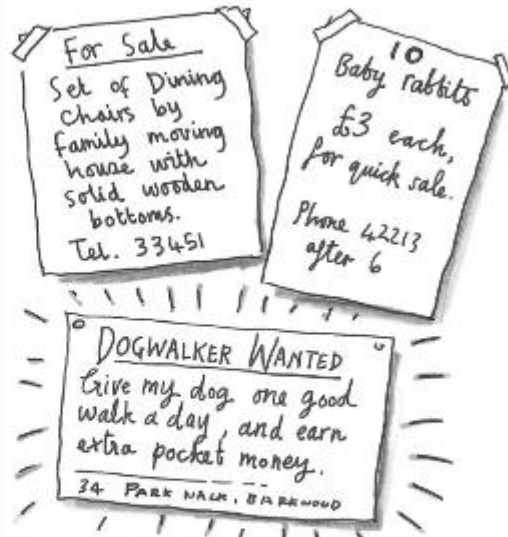 For Sale
Set of Dining
Chairs by
family moving
house with
solid wooden
bottoms.
Tel. 33451
10
Baby rabbits
£3 each,
for quick sale.
Phone 42213
after 6
DOGWALKER WANTED
Give my dog one good
walk a day, and earn
extra pocket money.
34 PARK WALK, BARKWOOD